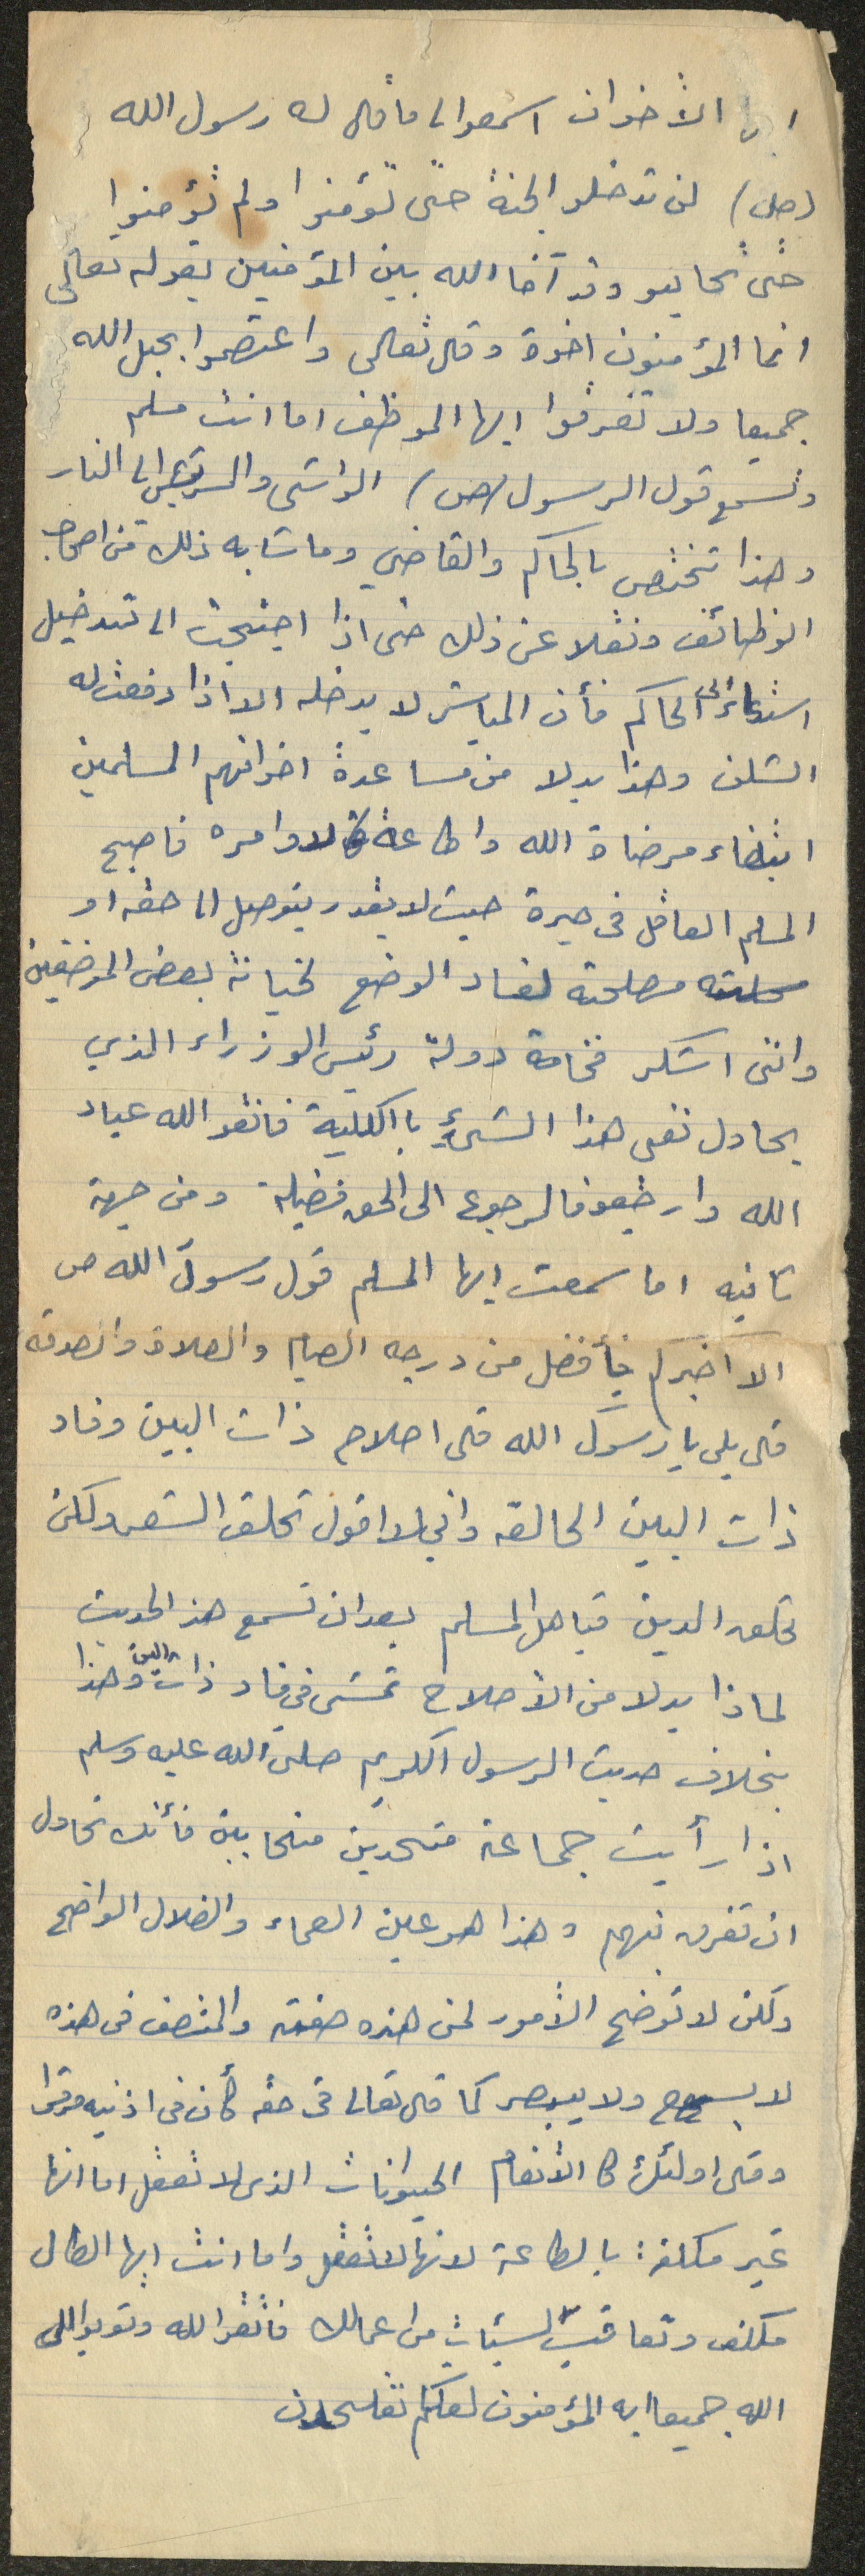 ايها الأخوان اسمعوا ما قال لك رسول الله
(ص) لن تدخلو الجنة حتى تؤمنوا ولم تؤمنوا
حتى تحابو وقد آخا الله بين المؤمنين بقوله تعالى
انما المؤمنون اخوة وقال تعالى واعتصموا بحبل الله
جميعا ولا تفرقوا ايها الموظف اما انت مسلم
وتسمع قول الرسول (ص) الراشى والمرتشي الى النار
وهذا تختص بالحاكم والقاضي وما شابه ذلك من اصحاب
الوظائف ونقلا عن ذلك حتى اذا احتجت الى تدخيل
استدعاء الى الحاكم فأن المباشر لا يدخله الا اذا دفعت له
الشلن وهذا بدلا من مساعدة اخوانهم المسلمين
ابتغاء مرضاة الله واطاعة لاوامره فاصبح
المسلم العاقل فى حيرة حيث لا يقدر يتوصل الى حقه او
مصلحته لفساد الوضع لخيانة بعض الموضفين
وانني اشكر فخامة دولة رئيس الوزراء الذي
يحاول نفى هذا الشيئ بالكلية فاتقو الله عباد
الله وارجعوا فالرجوع الى الحق فضيلة ومن جهة
ثانيه اما سمعت ايها المسلم قول رسول الله ص
الا اخبركم بأفضل من درجه الصيام والصلاة والصدقه
قال بلى يا رسول الله قال اصلاح ذات البين وفساد
ذات البين الحالقه واني لا اقول تحلق الشعر ولكن
تحلق الدين فيا هل المسلم بعد ان تسمع هذ الحديث
لماذا بدلا من الأصلاح تمشى فى فساد ذات البين وهذا
بخلاف حديث الرسول الكريم صلى الله عليه وسلم
اذا رأيت جماعة متحدين متحابين فأنك تحاول
ان تفرق بينهم وهذا هو عين العماء والضلال الواضح
ولكن لا توضح الأمور لمن هذه صفته والمتصف فى هذه
لا يسمع ولا يبصر كما قال تعالى فى حقه كأن فى اذنيه وقرا
وقال اولئك كا الأنعام الحيوانات الذى لا تعقل اما انها
غير مكلفة بالطاعة لانها لا تعقل واما انت ايها الضال
مكلف وتعاقب لسيئات من اعمالك فاتقوا الله وتوبوا الى
الله جميعا ايه المؤمنون لعلكم تفلحون